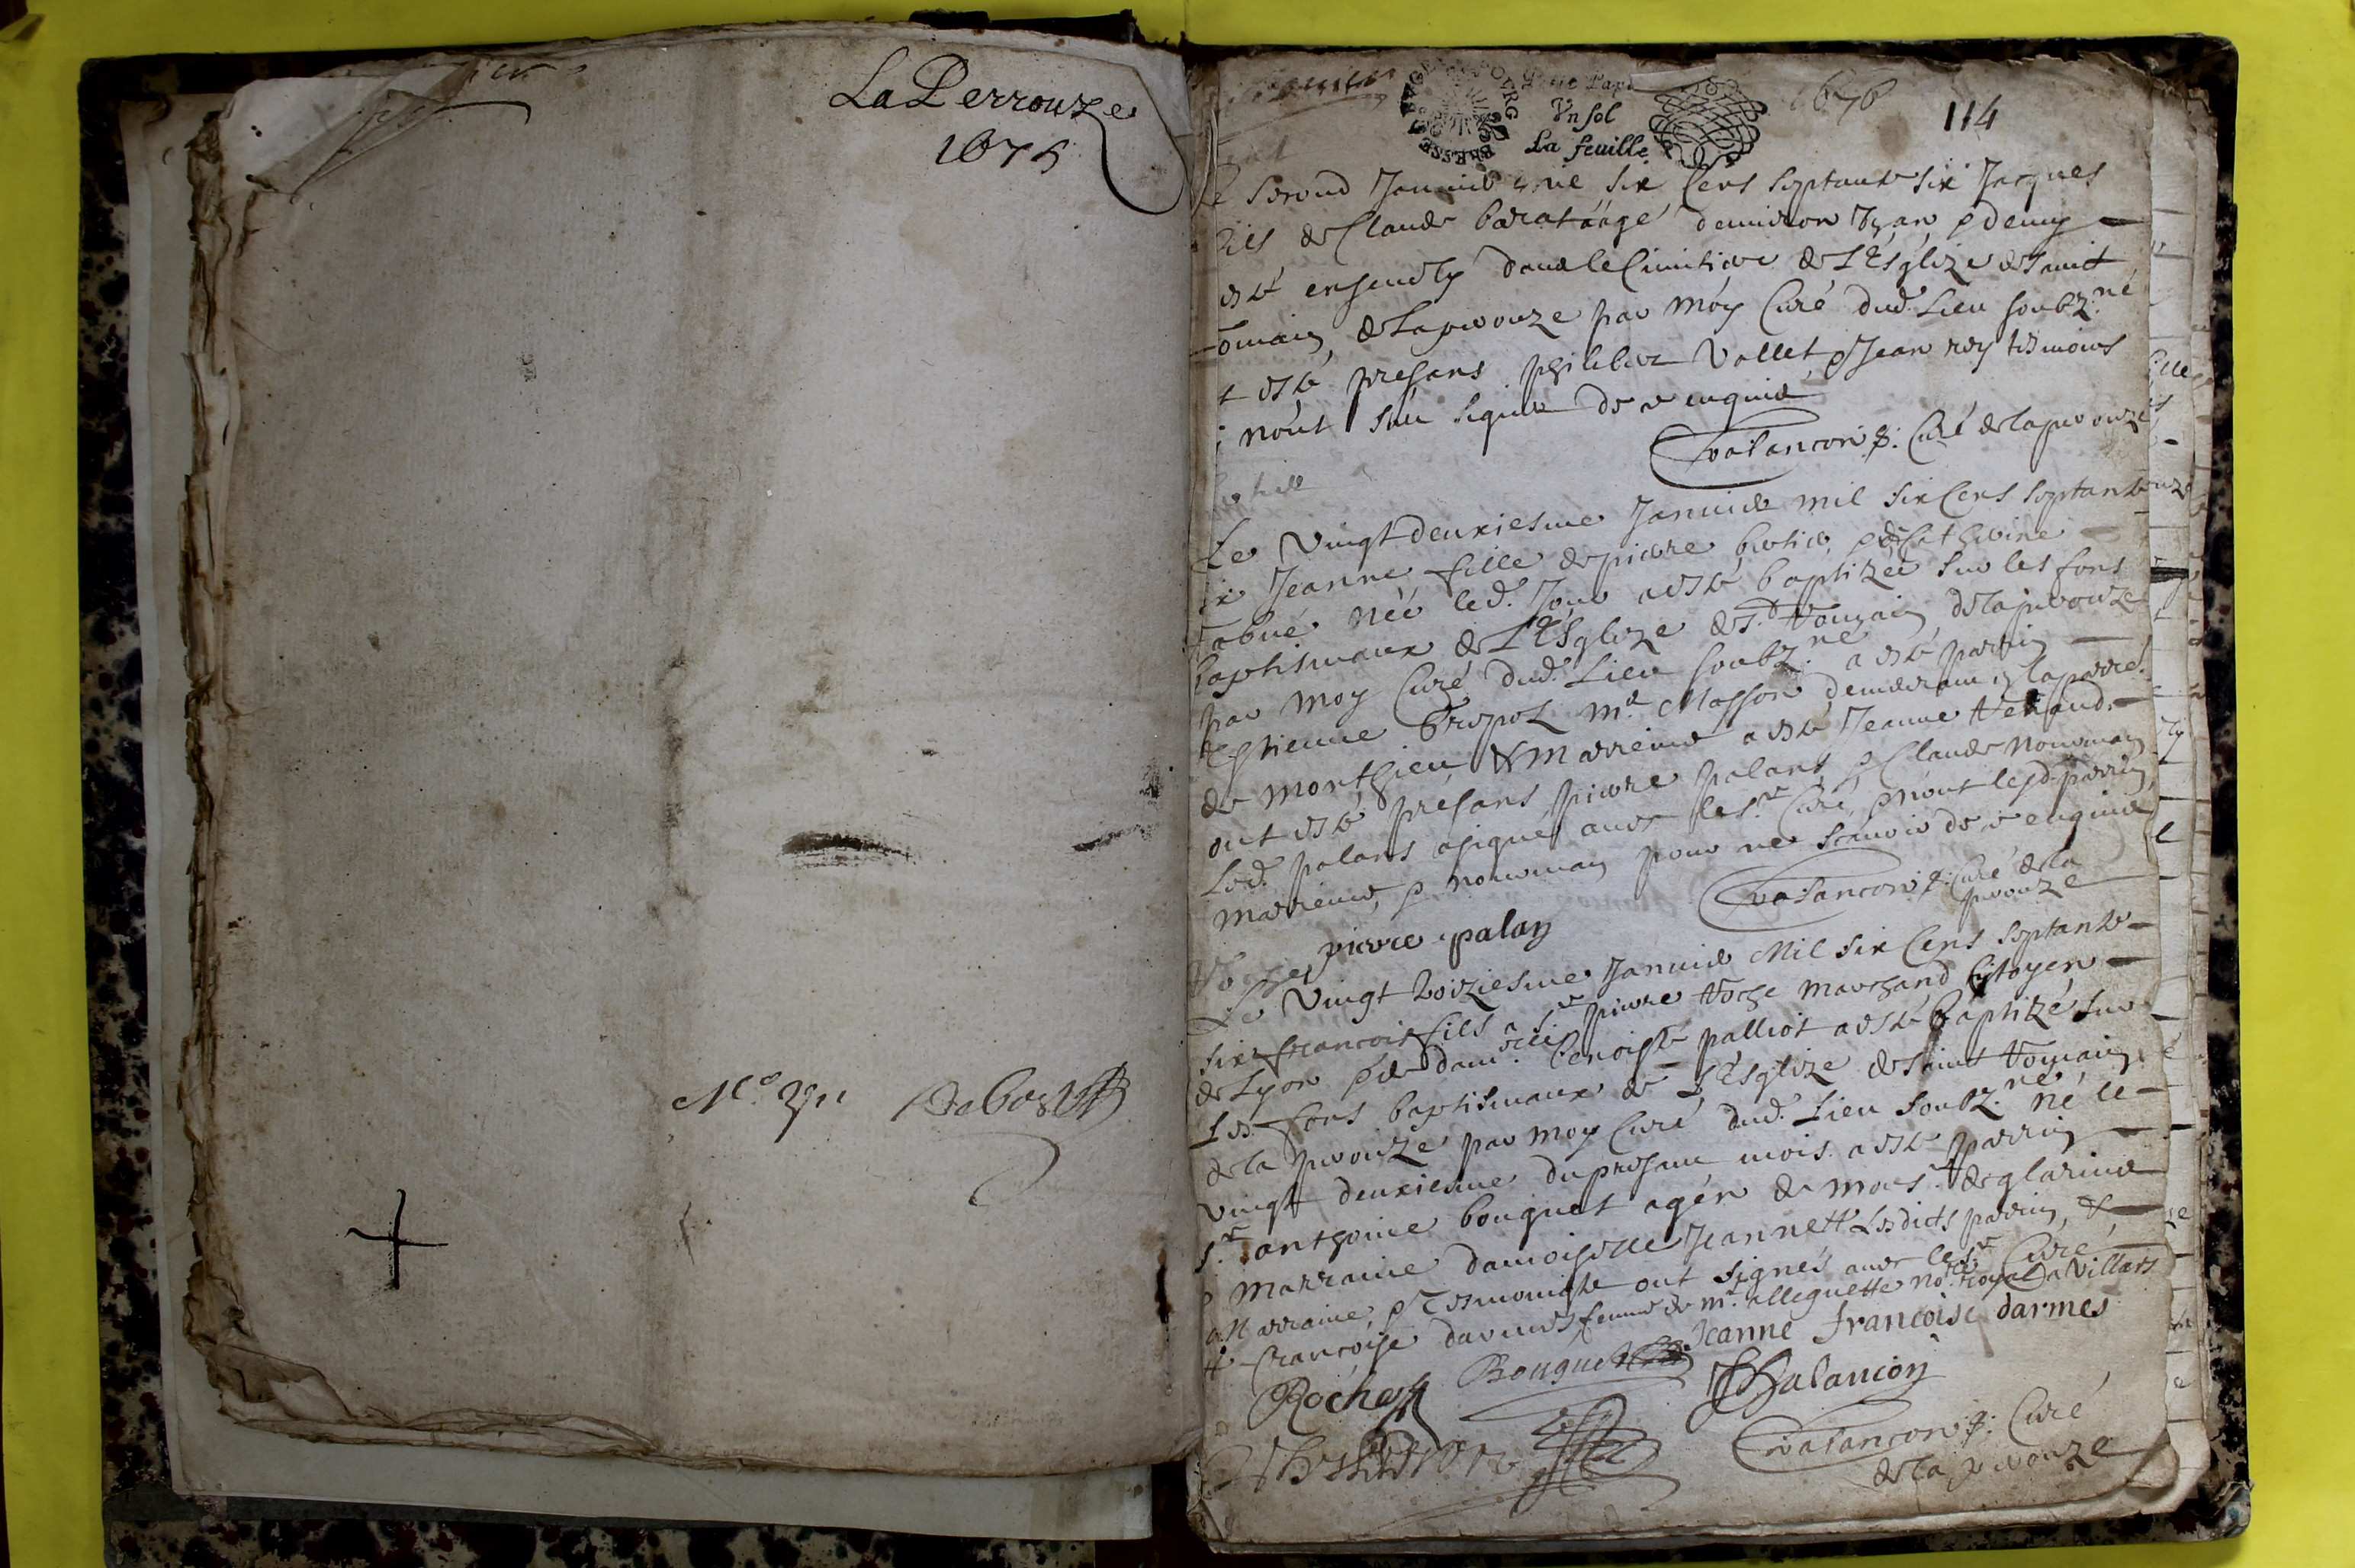 La Perrouze
1675
N.º
Petit Papi
Un sol
La feuille
1676
114
Le second Januier mil six Cens septante six Jacques
fils de Claude barat aagé denuiron vn an & demy
esté enseuely dans le Cimitiere de L'Esglize de saint
Romain de Laperouze par moy Curé dud. Lieu soubz.né
t esté presans philiber Vallet & Jean rey tesmoins
i n'ont sceu signer de ce enquis
Valancon p. Curé de laperouze
Le Vingt deuxiesme Januier mil six Cens septante
six Jeanne fille de pierre & de Catherine
née led. Jour a esté baptizée sur les fons
baptismaux de L'Esglize de St. Romain de laperouze
par moy Curé dud. Lieu soubz.né a esté parrin
Estienne m.e Masson demeurant
de monthieu & marreine a esté Jeanne Renaud
ont esté presans pierre palans & Claude nouuman
Led. palans a signé auec le s.r Curé & n'ont lesd. parrin
marreine & nouuman pour ne scauoir de ce enquis
Valancon p. Curé de la
perouze
pierre palan
Roche
Le Vingt troiziesme Januier Mil six Cens septante
six francois fils a s.r pierre Roche marchand Citoyen
de Lyon & de dam.elle benoiste palliot a esté baptizé sur
Les fons baptismaux de L'Esglize de saint Romain
de la perouze par moy Curé dud. Lieu soubz.né né le
vingt deuxiesme du presant mois a esté parrin
s.r anthoine bouquet agen de mons.r de glarins
& marraine damoiselle Jeanne # Lesdicts parrin &
Marraine & tesmoins ont signés auec le s.r Curé
# francoise darmes femme de m.r alleguette no.re royal a Villars
Bouquet Jeanne francoise darmes
Roche
JValancon
Valancon p. Curé
de la perouze